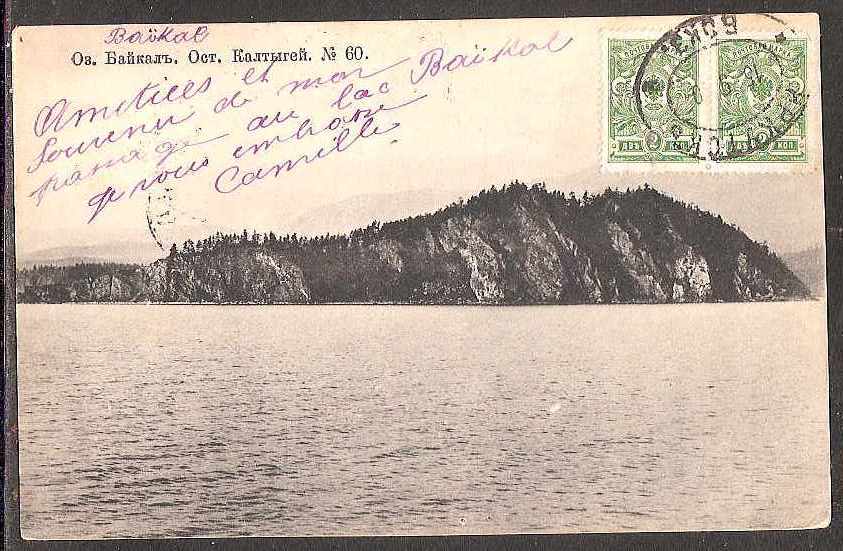 Baïkal
Оз. Байкалъ. Ост. Калтыгей. № 60.
Amitiées et
Souvenir de mon
passage au lac Baïkal
je vous embrasse
Camille
2 ДВѢ КОП
КОП